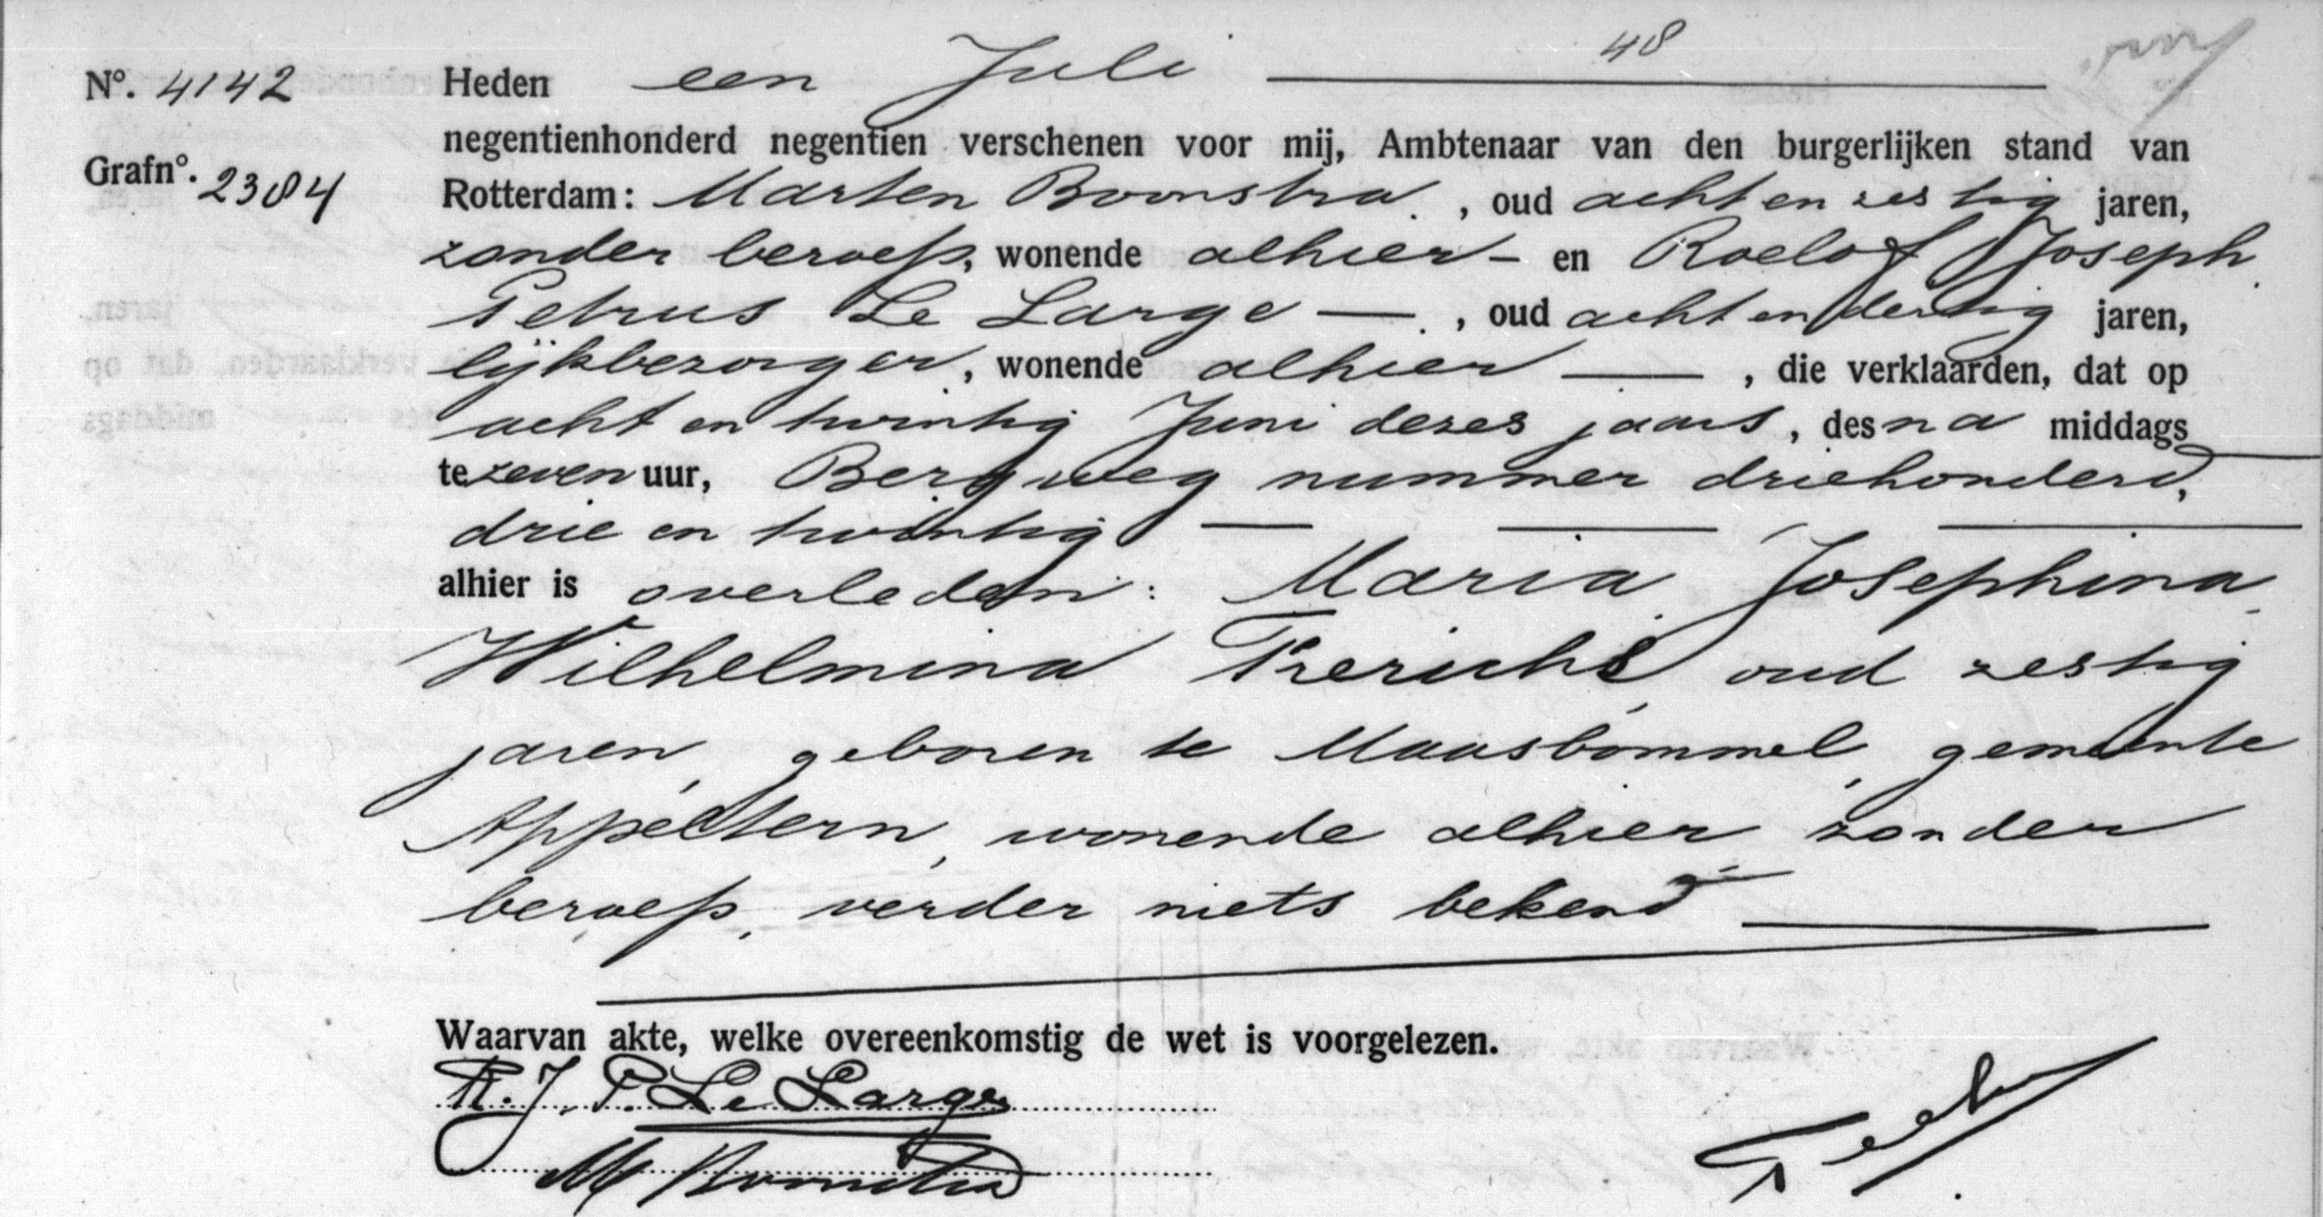 48
Nº. 4142 Heden een Juli
negentienhonderd negentien verschenen voor mij, Ambtenaar van den burgerlijken stand van
Grafnº. 2384 Rotterdam: Marten Boonstra, oud achtenzestig jaren,
zonder beroep, wonende alhier - en Roelof Joseph
Petrus Le Large —, oud achtendertig jaren,
lijkbezorger, wonende alhier —, die verklaarden, dat op
acht en twintig Juni dezes jaars, des na middags
te zeven uur, Bergweg nummer driehonderd,
drie en twintig — — —
alhier is overleden: Maria Josephina
Wilhelmina Frerichs, oud zestig
jaren, geboren te Maasbommel, gemeente
Appeltern, wonende alhier, zonder
beroep, verder niets bekend
Waarvan akte, welke overeenkomstig de wet is voorgelezen.
R. J. P. Le Large
M Boonstra